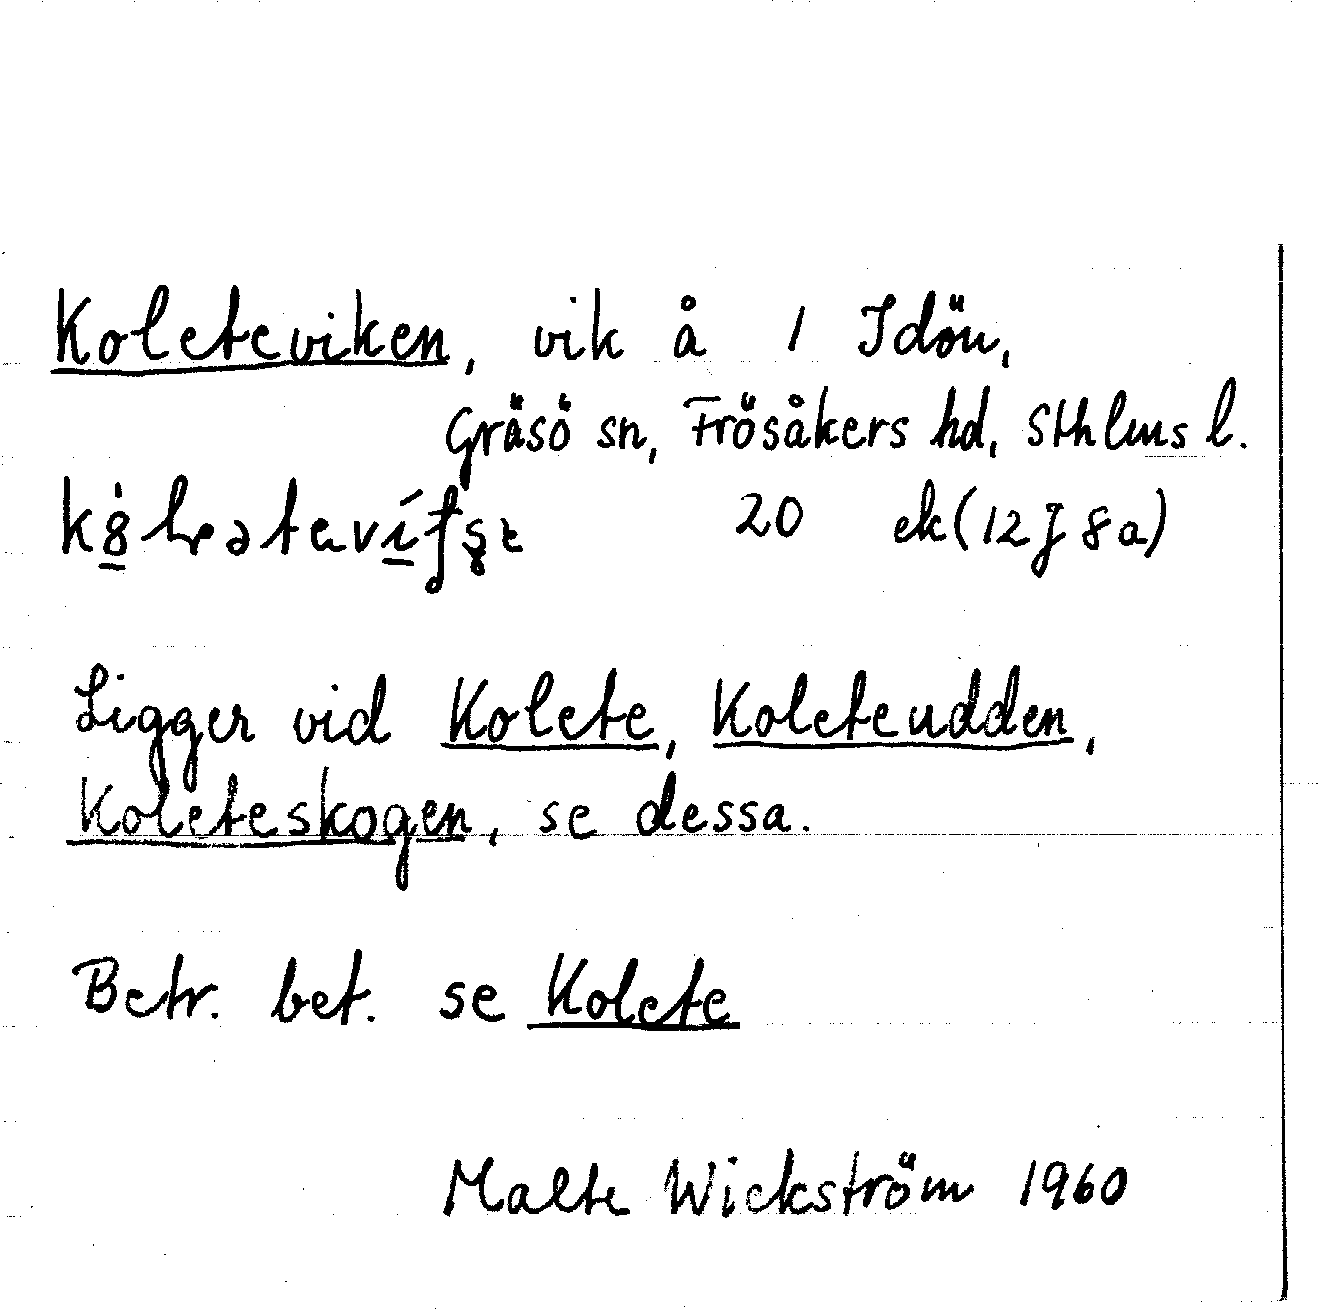 Koleteviken, vik å 1 Idön,
Gräsö sn, Frösåkers hd, Sthlms l.
20 ek (12J 8a)
Ligger vid Kolete, Koleteudden,
Koleteskogen, se dessa.
Betr. bet. se Kolete
Malte Wickström 1960